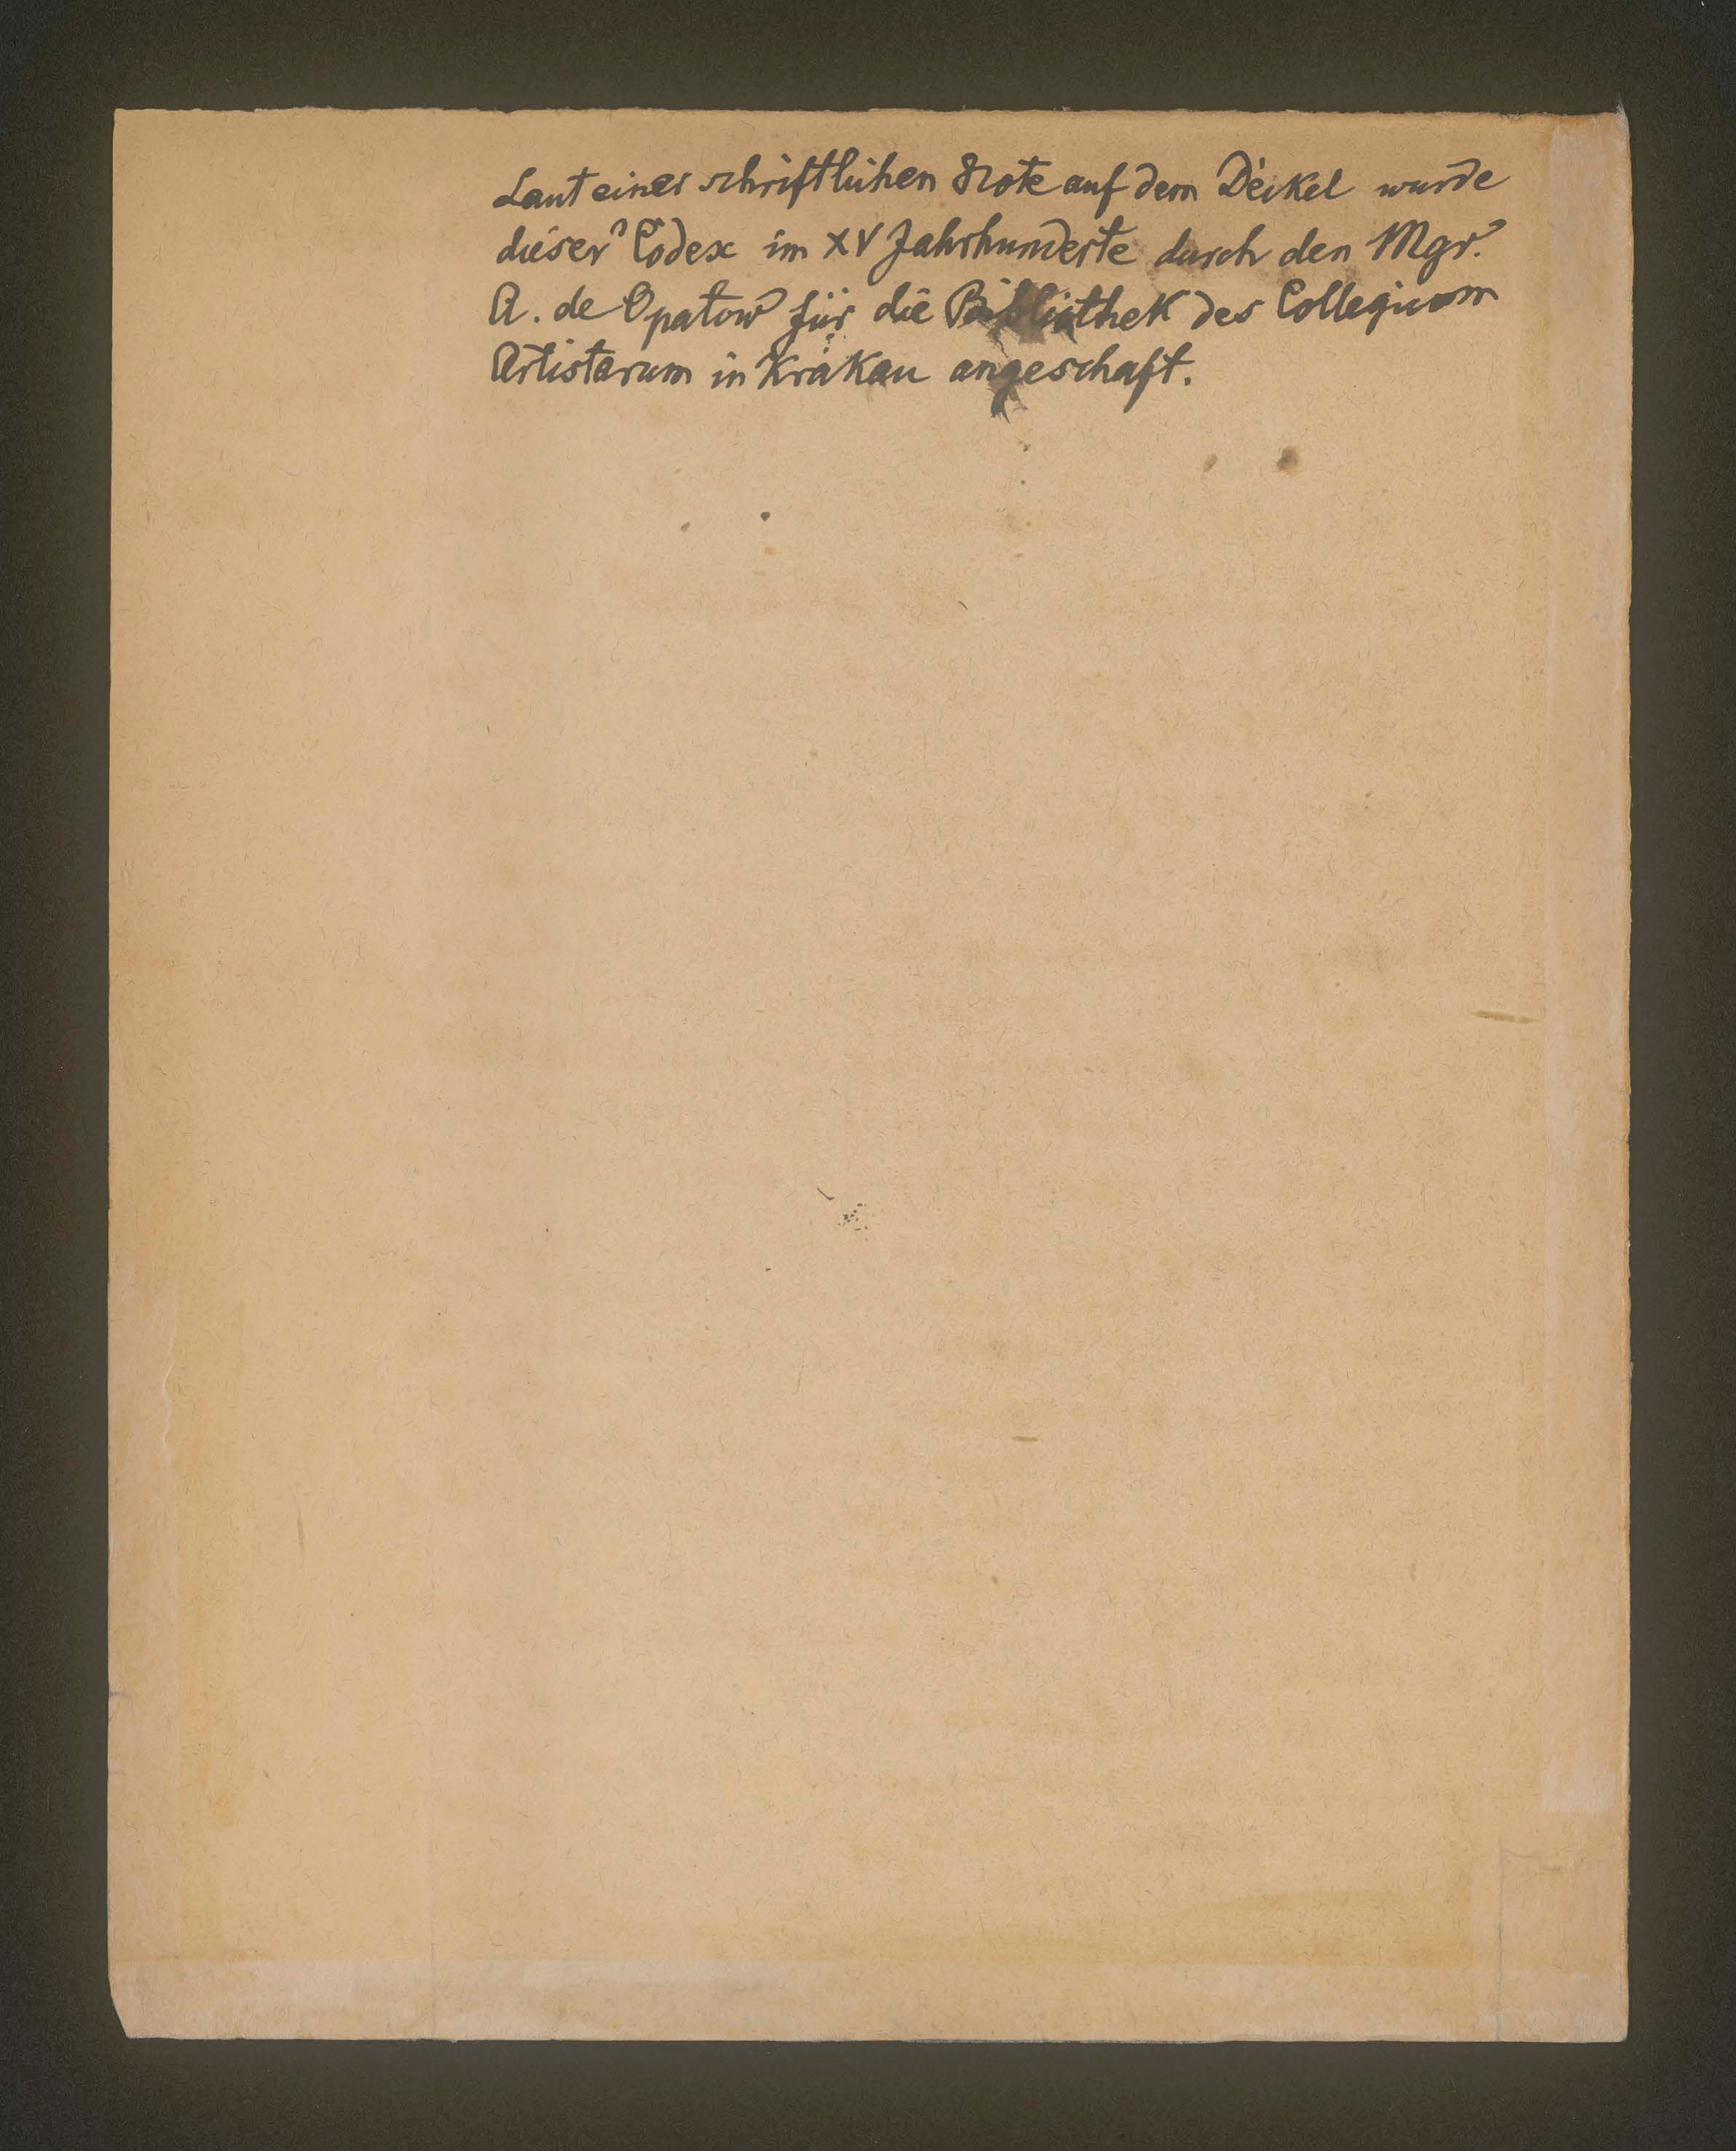 Laut einer schriftlichen Note auf dem Deckel wurde
dieser Codex im XV Jahrhunderte durch den Mgr.
A. de Opatow für die Bibliothek des Collegium
Artistarum in Krakau angeschaft.